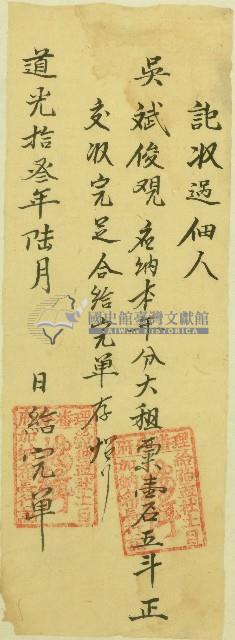 記收過佃人
吳斌俊覌 名納本年分大租粟壹石五斗正
交收完足合給完單存炤
道光拾叁年陸月 日給完單
國史館臺灣文獻館
TAIWAN HISTORICA